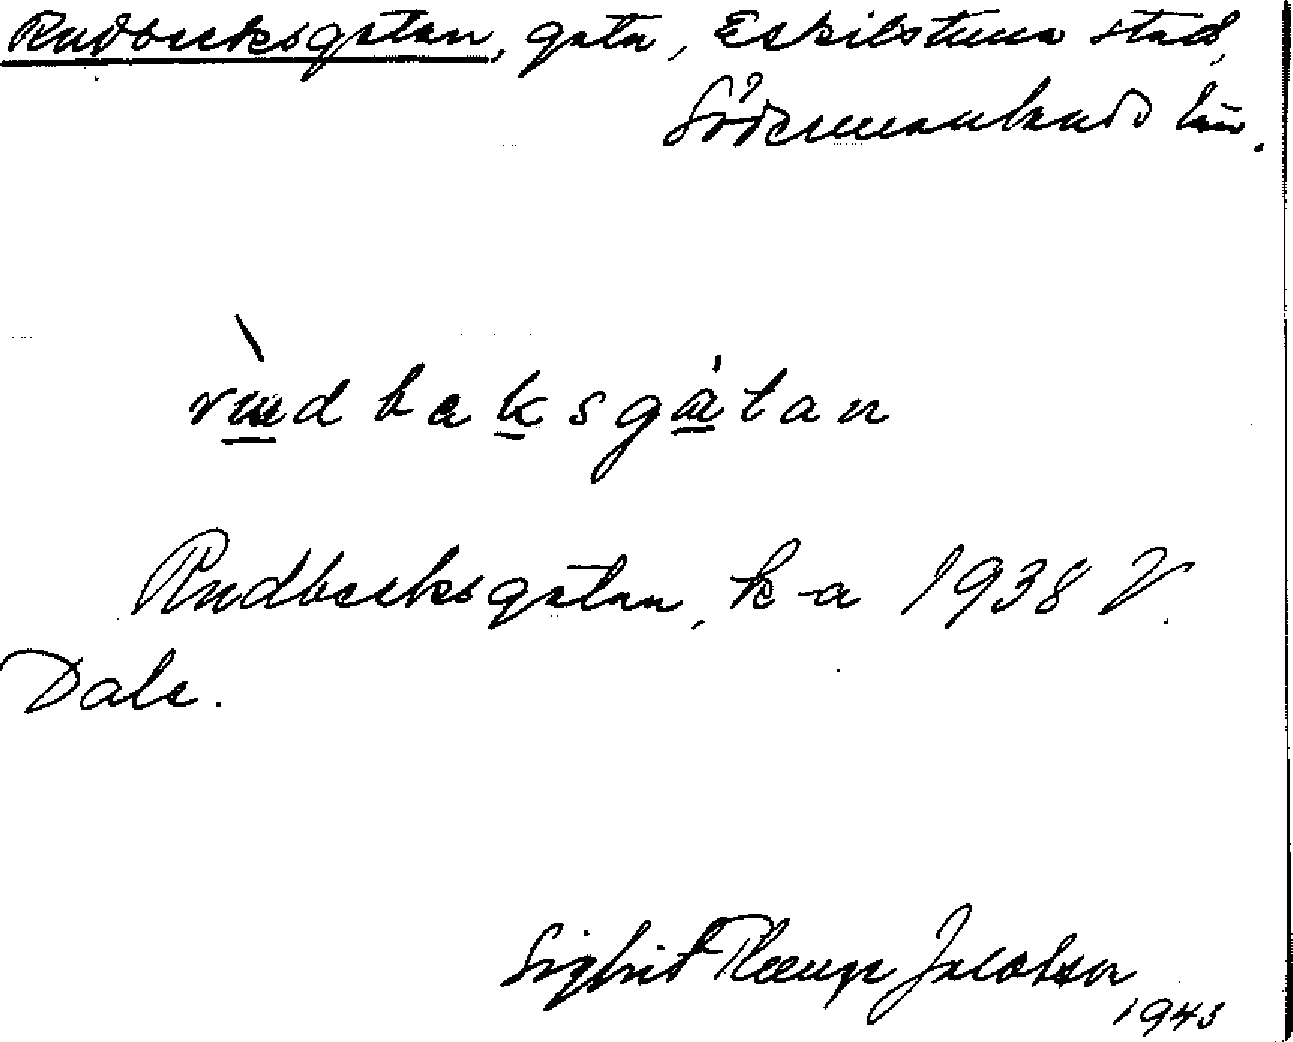 Rudbecksgatan, gata, Eskilstuna stad,
Södermanlands län.
rùdbeksgátan
Rudbecksgatan, k-a 1938 V.
Dale.
Sigfrid Jacobson
1943